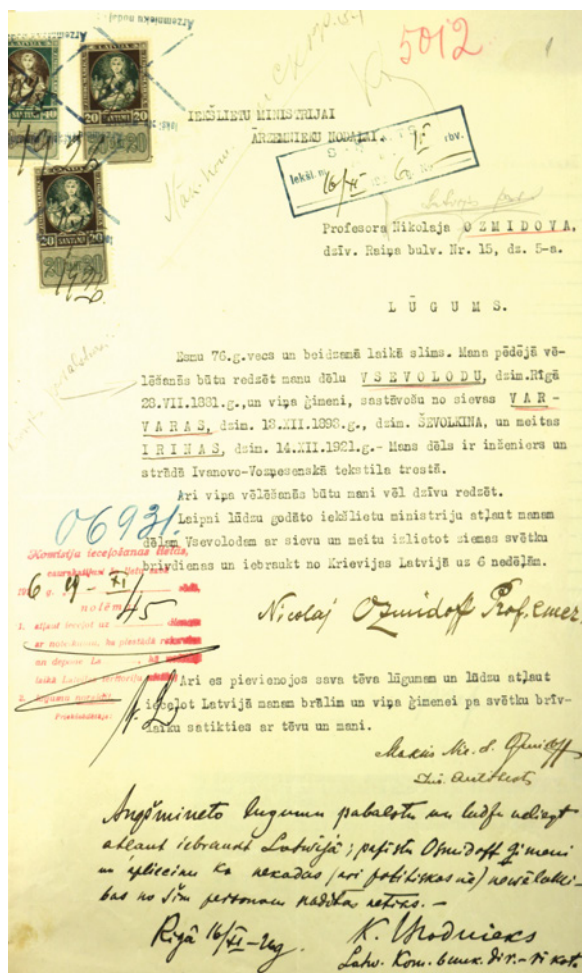 5012
1
IEKŠLIETU MINISTRIJAI
ĀRZEMNIEKU NODAĻAI.
Profesora Nikolaja OZMIDOVA,
dzīv. Raiņa bulv. Nr. 15, dz. 5-a.
LŪGUMS.
Esmu 76.g.vecs un beidzamā laikā slims. Mana pēdējā vē-
lēšanās būtu redzēt manu dēlu VSEVOLODU, dzim.Rīgā
28.VII.1881.g.,un viņa ģimeni, sastāvošu no sievas VAR-
VARAS, dzim. 13.XII.1893.g., dzim. ŠEVOLKINA, un meitas
IRINAS, dzim. 14.XII.1921.g.- Mans dēls ir inženiers un
strādā Ivanovo-Vozņesenskā tekstila trestā.
Arī viņa vēlēšanās būtu mani vēl dzīvu redzēt.
Laipni lūdzu godāto iekšlietu ministriju atļaut manam
dēlam Vsevolodam ar sievu un meitu izlietot ziemas svētku
brīvdienas un iebraukt no Krievijas Latvijā uz 6 nedēļām.
06931
Komisija ieceļošanas lietās,
nolēma
1. atļaut ieceļot uz
2. lūgumu noraidīt
Priekšsēdētājs:
Nicolaj Ozmidoff Prof. emer.
Arī es pievienojos sava tēva lūgumam un lūdzu atļaut
ieceļot Latvijā manam brālim un viņa ģimenei pa svētku brīv-
laiku satikties ar tēvu un mani.
Ozmidoff
Augšmineto lugumu pabalstu un ludzu neliegt
atļaut iebraukt Latvijā; pazistu Osmidoff ģimeni
un apliecinu ka nekadas (ari politiskas) nevēlami-
bas no šim personam naditas netiks.-
Rīgā 16/XI-26g
20 SANTIMU 20
20 SANTIMU 20